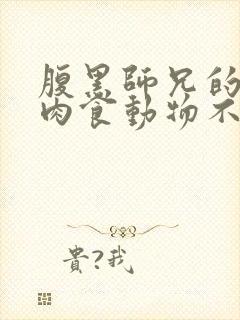 腹黑師兄的
肉食動物不
貴?我